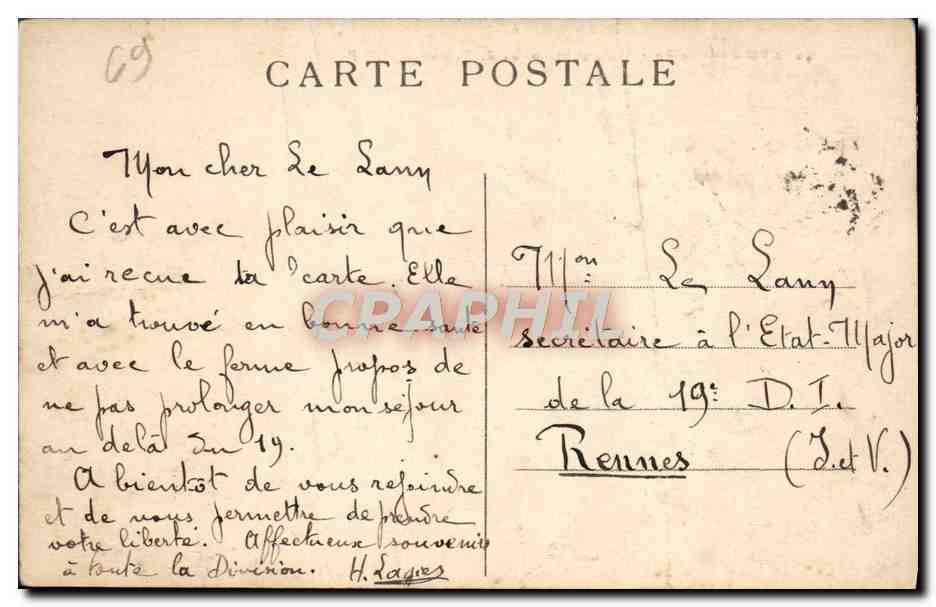 69
CARTE POSTALE
Mon cher Le Lann
C'est avec plaisir que
j'ai recue ta carte. Elle
m'a trouvé en bonne santé
et avec le ferme propos de
ne pas prolonger mon séjour
au delà du 19.
A bientôt de vous rejoindre
et de vous permettre de prendre
votre liberté. Affectueux souvenir
à toute la Division. H.
Mon Le Lann
secrétaire à l'Etat-Major
de la 19e D. I.
Rennes (I. et V.)
CRAPHIL